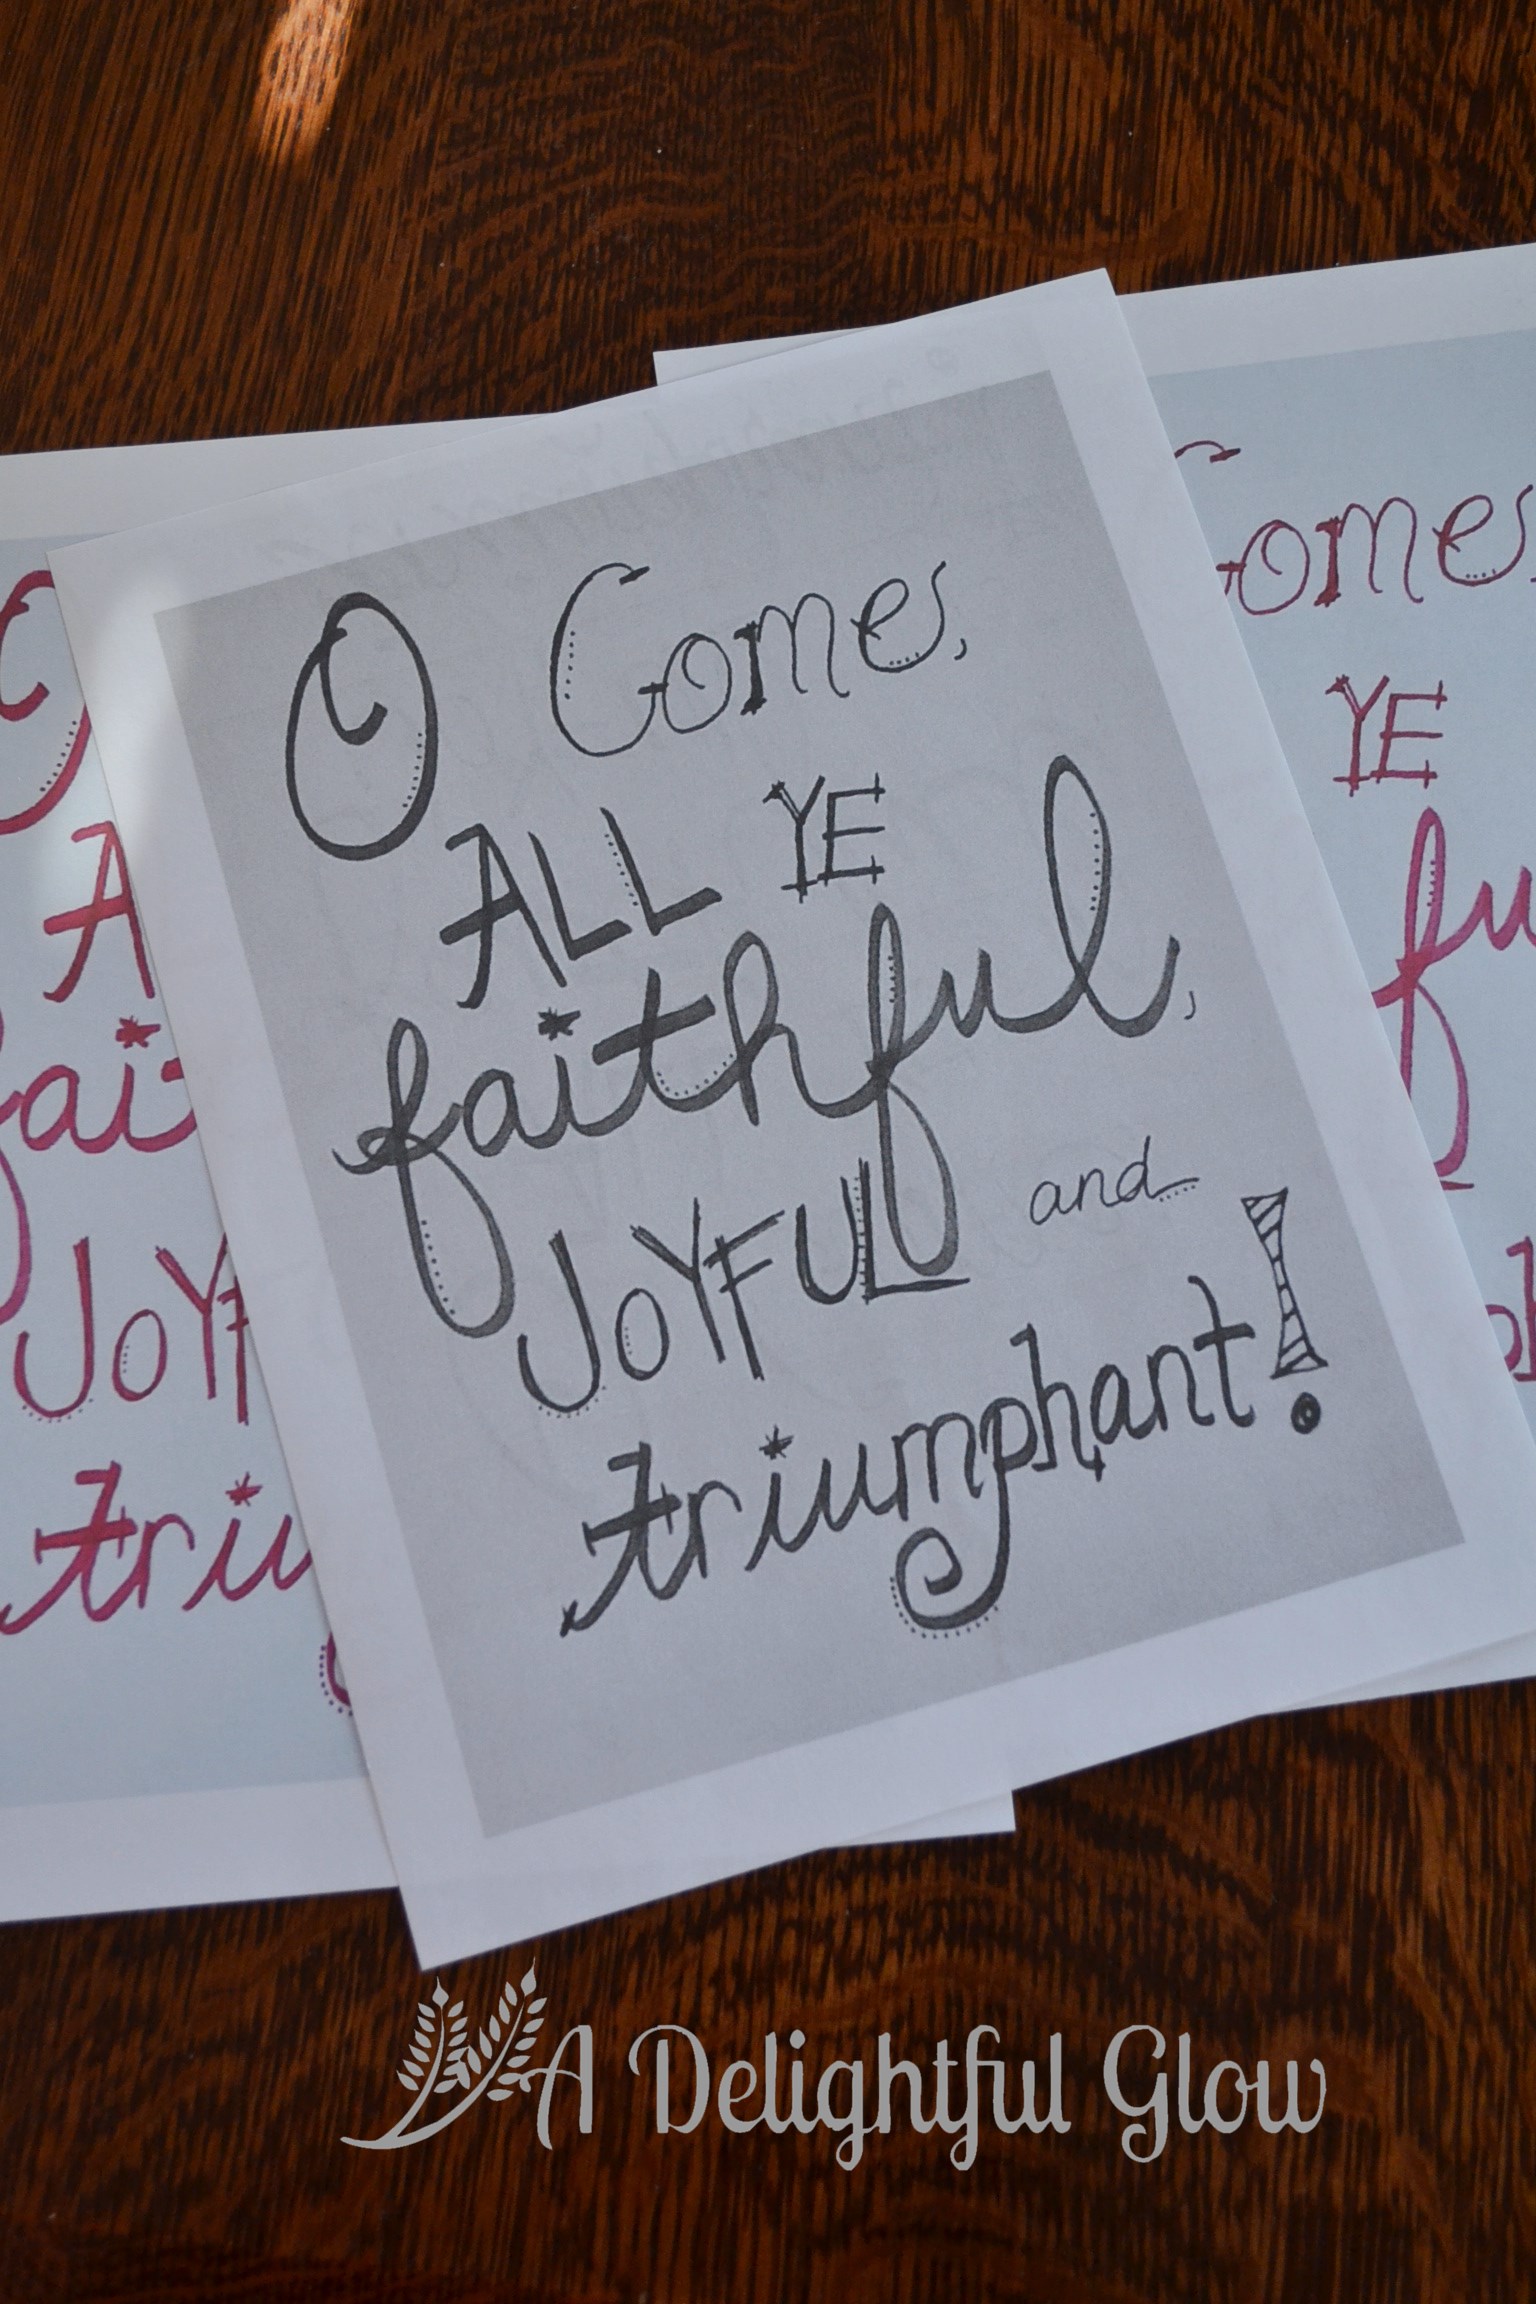 O Come,
ALL YE
faithful,
JOYFUL and
triumphant!
O
A
fait
JOYF
triu
Come,
YE
fu
A Delightful Glow